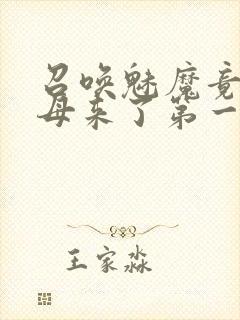 召唤魅魔竟
母来了第一
王家淼